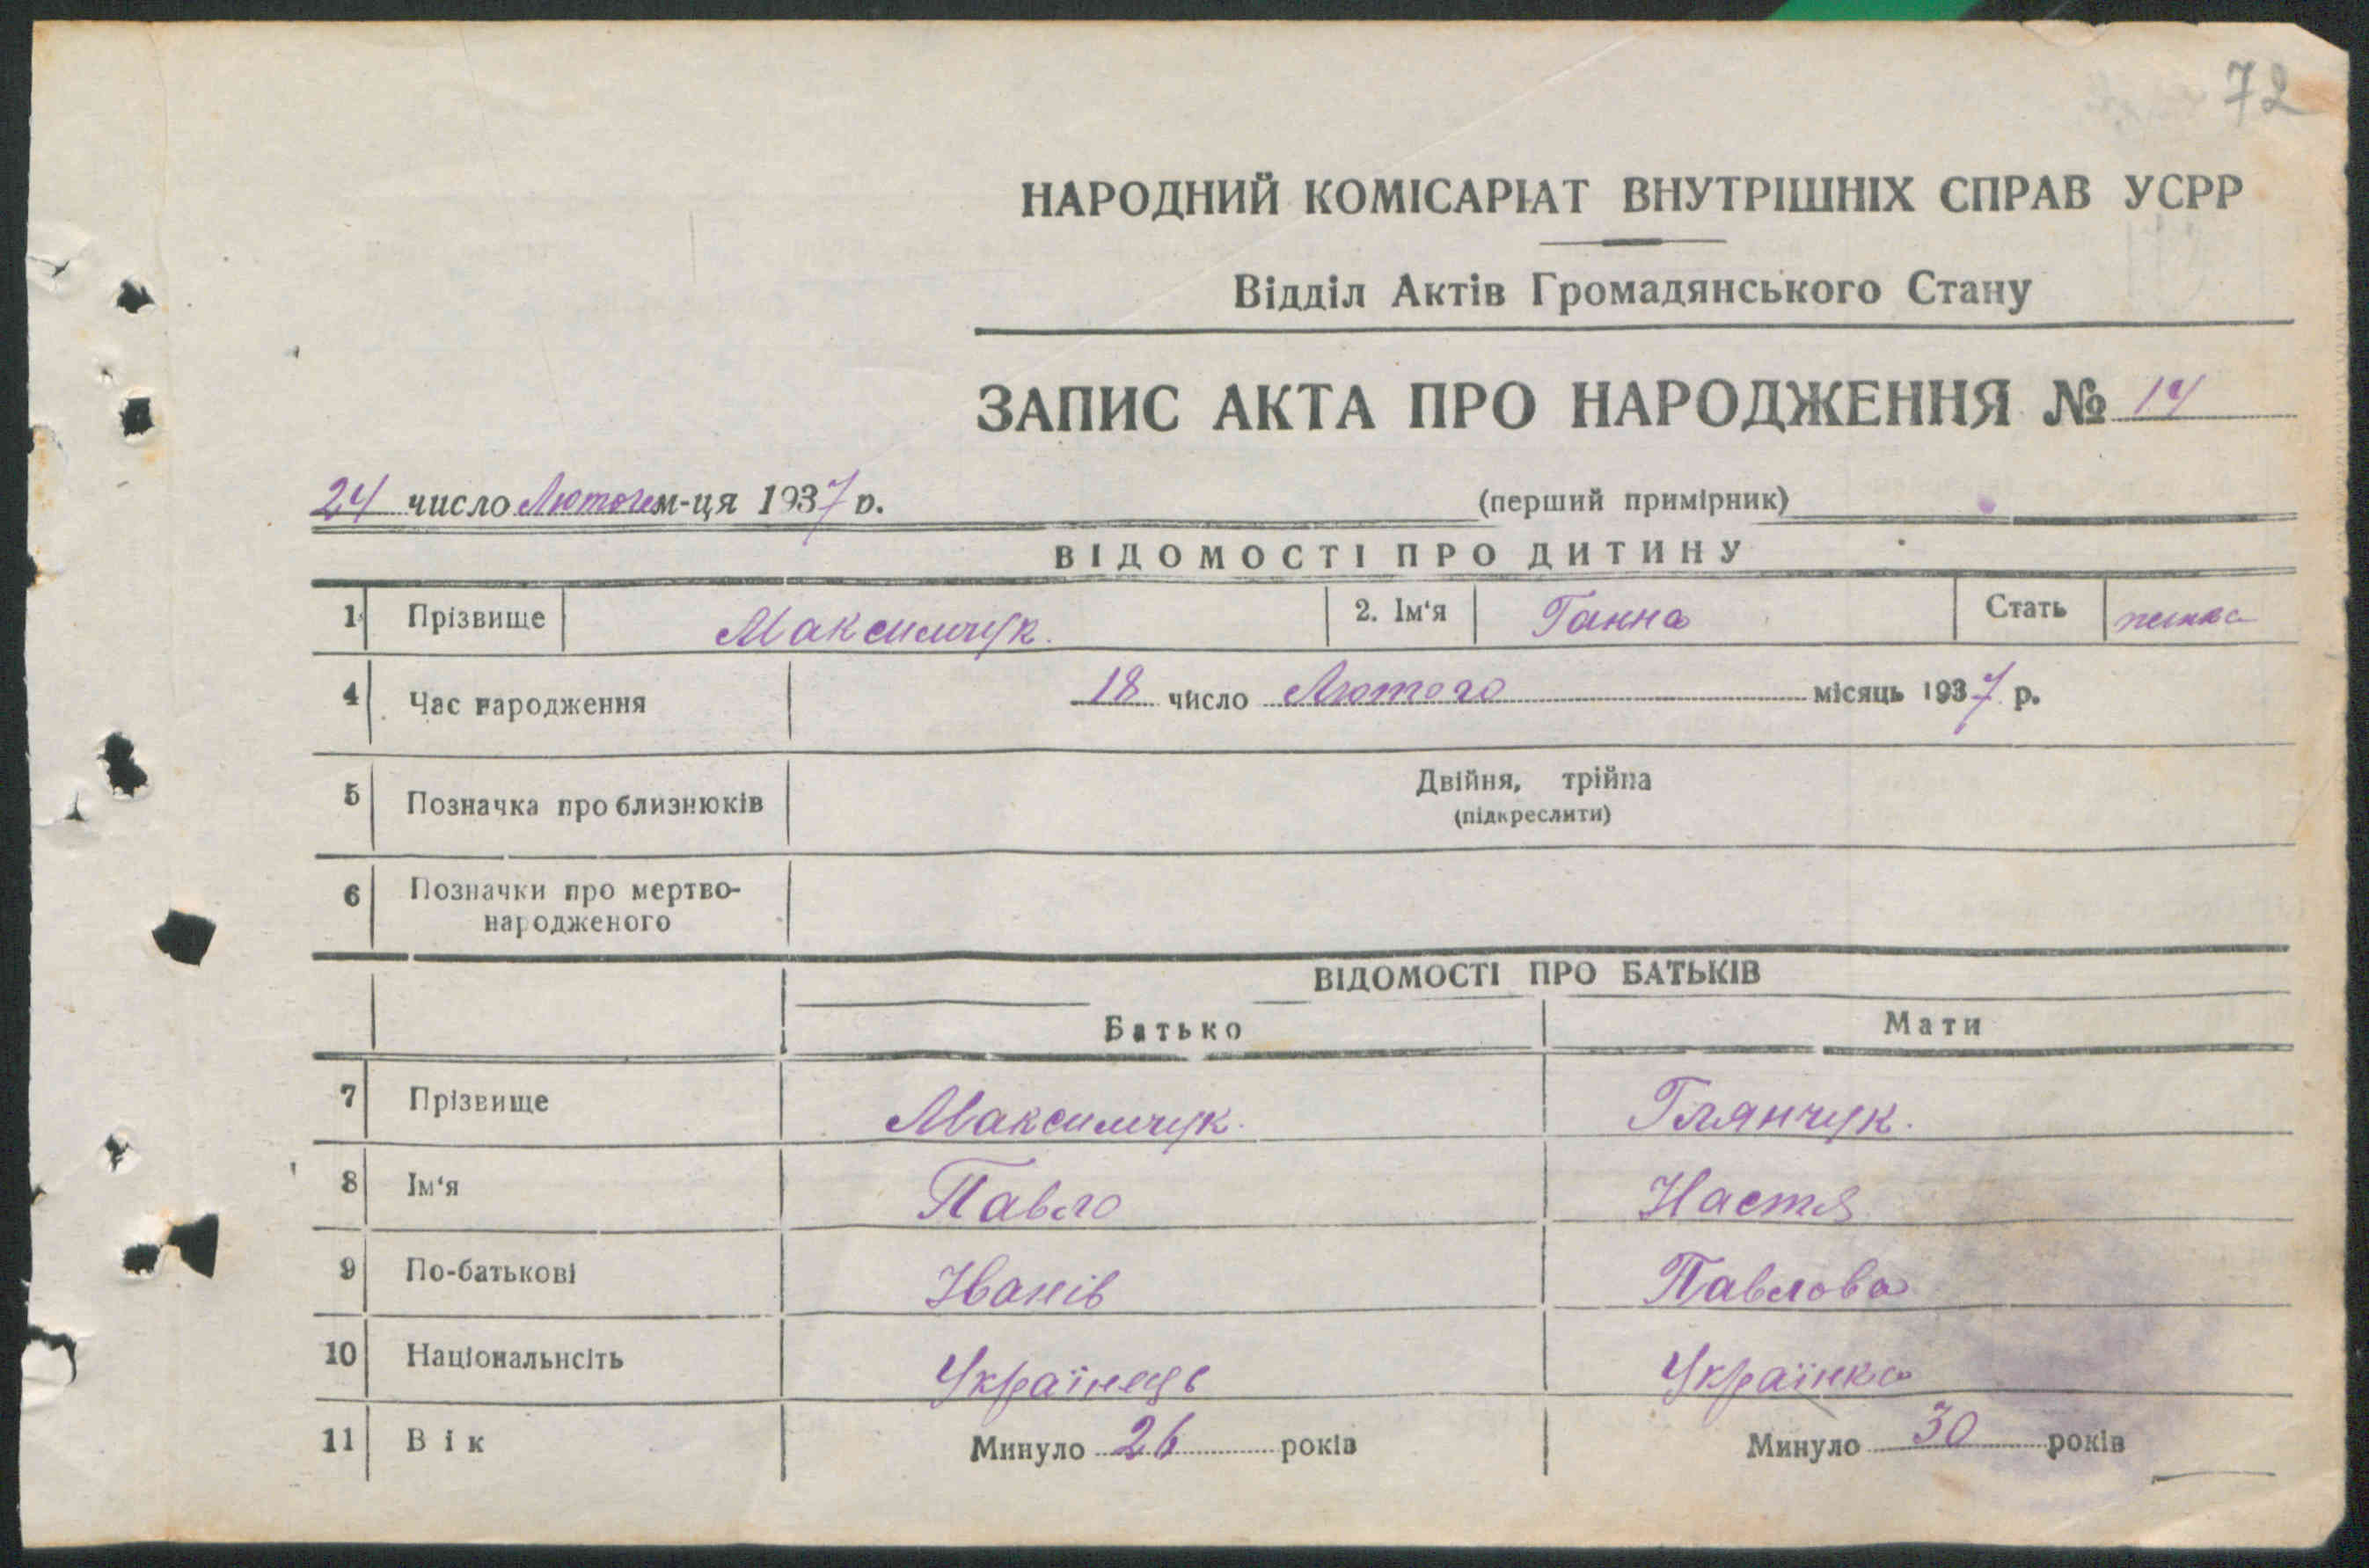 72
НАРОДНИЙ КОМІСАРІАТ ВНУТРІШНІХ СПРАВ УСРР
Відділ Актів Громадянського Стану
ЗАПИС АКТА ПРО НАРОДЖЕННЯ № 14
24 число Лютого м-ця 1937 р.
(перший примірник)
ВІДОМОСТІ ПРО ДИТИНУ
1 Прізвище Максимчук. 2. Ім'я Ганна Стать
4 Час народження 18 число Лютого місяць 1937 р.
5 Позначка про близнюків Двійня, трійпа
(підкреслити)
6 Позначки про мертво-
народженого
ВІДОМОСТІ ПРО БАТЬКІВ
Батько Мати
7 Прізвище Максимчук. Глянчук.
8 Ім'я Павло Настя
9 По-батькові Іванів Павлова
10 Національнсіть Українець Українка
11 Вік Минуло 26 років Минуло 30 років